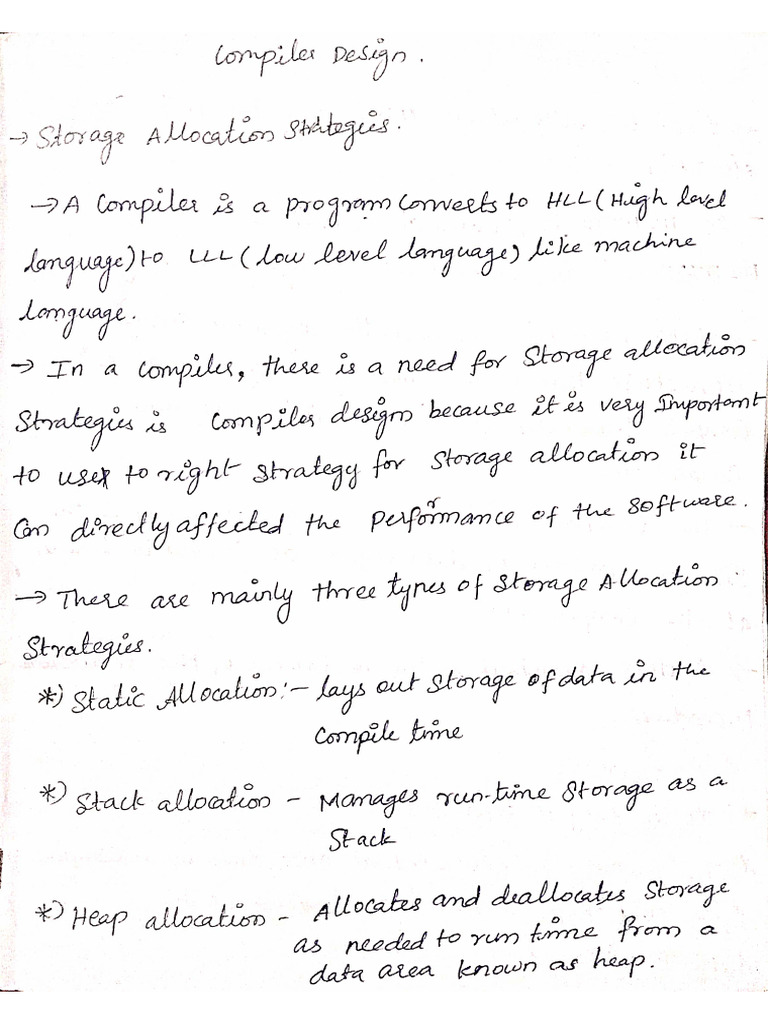 Compiler Design.
→ Storage Allocation Strategies.
→ A Compiler is a program converts to HLL (High level
language) to LLL (low level language) like machine
language.
→ In a compiler, there is a need for Storage allocation
Strategies is compiler design because it is very Important
to use to right strategy for storage allocation it
Can directly affected the performance of the software.
→ There are mainly three types of Storage Allocation
Strategies.
*) Static Allocation:- lays out storage of data in the
Compile time
*) Stack allocation - Manages run-time Storage as a
Stack
*) Heap allocation - Allocates and deallocates Storage
as needed to run time from a
data area known as heap.